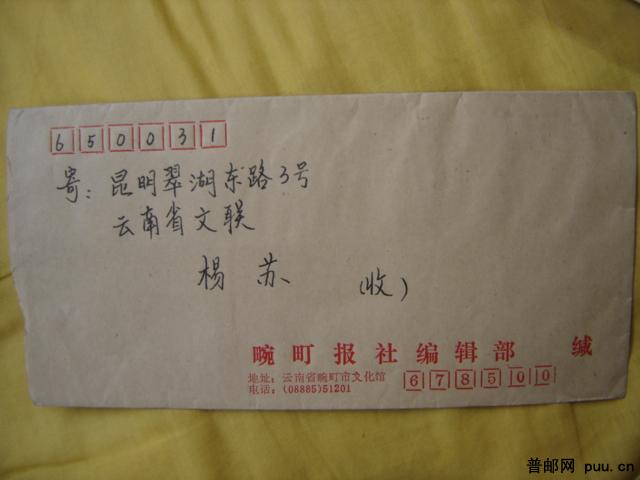 650031
寄：昆明翠湖东路3号
云南省文联
杨苏 （收）
畹町报社编辑部 缄
地址：云南省畹町市文化馆 678500
电话：(08885)51201
普邮网 puu.cn